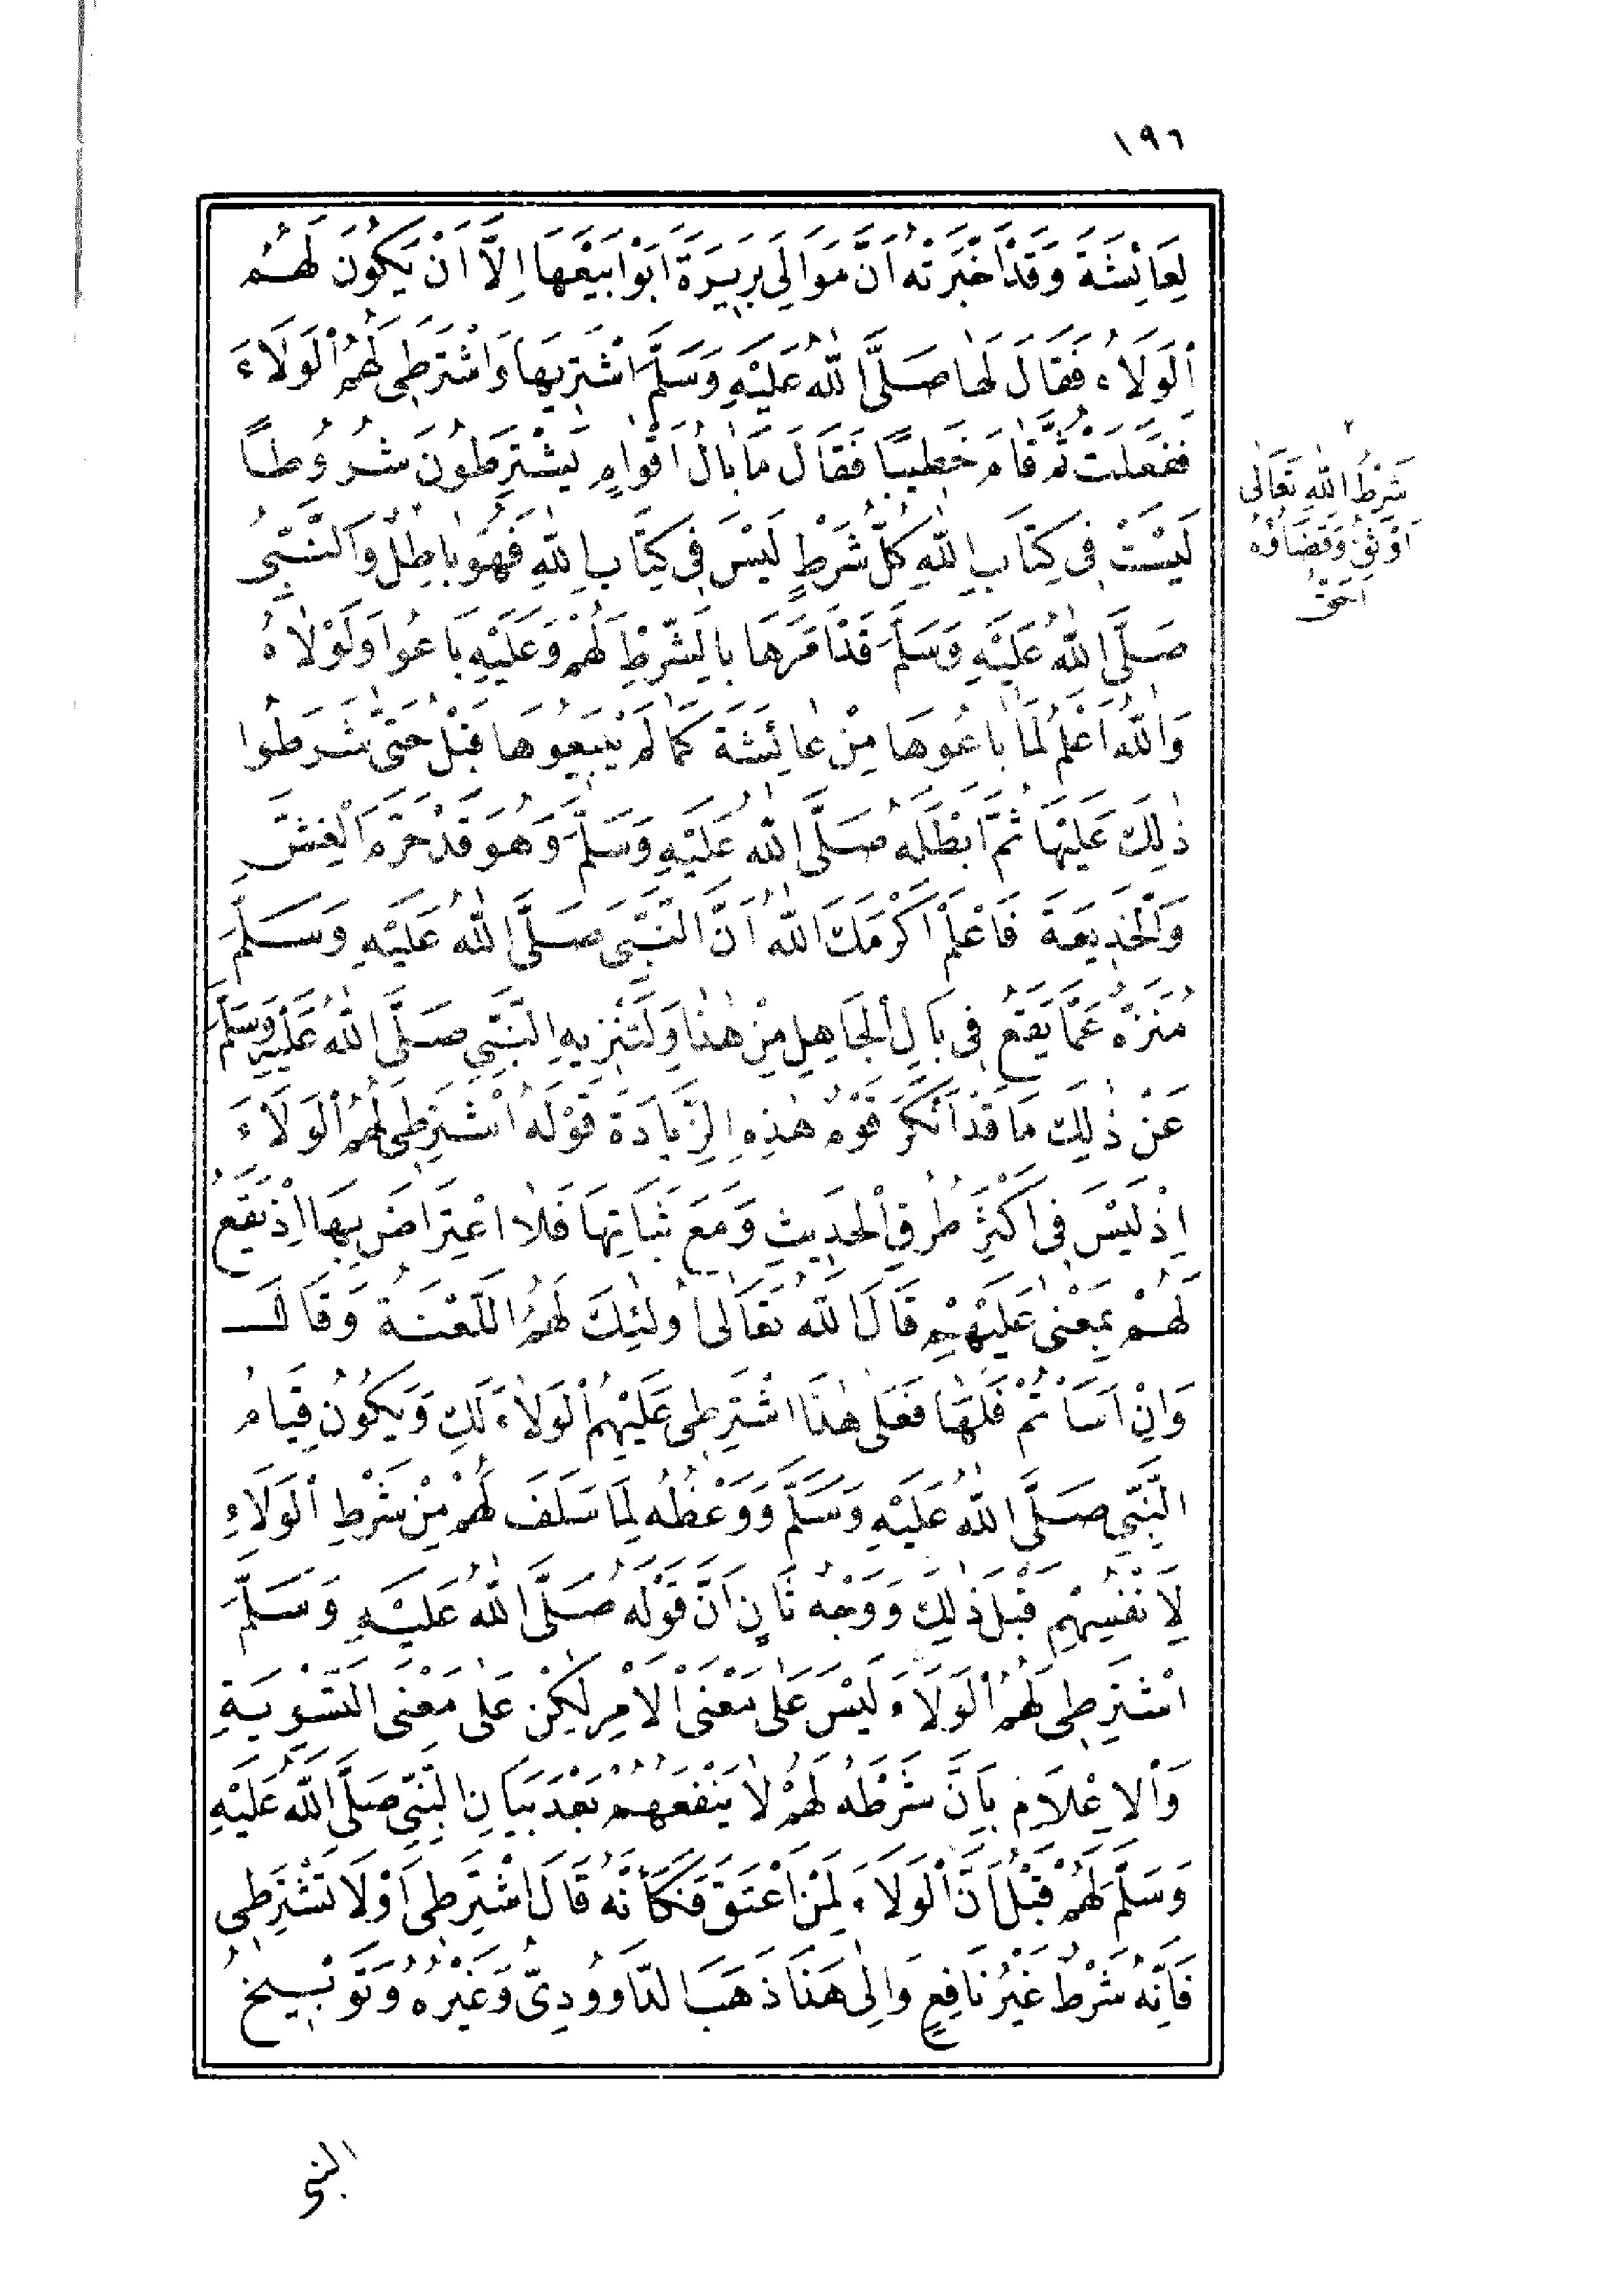 ١٩٦
لِعَائِشَةَ وَقَدْ اَخْبَرَتْهُ اَنَّ مَوَالِيَ بَرِيرَةَ اَبَوْا بَيْعَهَا اِلَّا اَنْ يَكُونَ لَهُمُ
الْوَلَاءُ فَقَالَ لَهَا صَلَّى اللهُ عَلَيْهِ وَسَلَّمَ اشْتَرِيهَا وَاشْتَرِطِى لَهُمُ الْوَلَاءَ
فَفَعَلَتْ ثُمَّ قَامَ خَطِيبًا فَقَالَ مَا بَالُ اَقْوَامٍ يَشْتَرِطُونَ شُرُوطًا
لَيْسَتْ فِى كِتَابِ اللهِ كُلُّ شَرْطٍ لَيْسَ فِى كِتَابِ اللهِ فَهُوَ بَاطِلٌ وَالنَّبِىُّ
صَلَّى اللهُ عَلَيْهِ وَسَلَّمَ قَدْ اَمَرَهَا بِالشَّرْطِ لَهُمْ وَعَلَيْهِ بَاعُوا وَلَوْلَاهُ
وَاللهُ اَعْلَمُ لَمَا بَاعُوهَا مِنْ عَائِشَةَ كَمَا لَمْ يَبِيعُوهَا قَبْلُ حَتَّى شَرَطُوا
ذٰلِكَ عَلَيْهَا ثُمَّ اَبْطَلَهُ صَلَّى اللهُ عَلَيْهِ وَسَلَّمَ وَهُوَ قَدْ حَرَّمَ الْغِشَّ
وَالْخَدِيعَةَ فَاعْلَمْ اَكْرَمَكَ اللهُ اَنَّ النَّبِىَّ صَلَّى اللهُ عَلَيْهِ وَسَلَّمَ
مُنَزَّهٌ عَمَّا يَقَعُ فِى بَالِ الْجَاهِلِ مِنْ هٰذَا وَلِتَنْزِيهِ النَّبِىِّ صَلَّى اللهُ عَلَيْهِ وَسَلَّمَ
عَنْ ذٰلِكَ مَا قَدْ اَنْكَرَ قَوْمٌ هٰذِهِ الزِّيَادَةَ قَوْلَهُ اشْتَرِطِى لَهُمُ الْوَلَاءَ
اِذْ لَيْسَ فِى اَكْثَرِ طُرُقِ الْحَدِيثِ وَمَعَ ثَبَاتِهَا فَلَا اعْتِرَاضَ بِهَا اِذْ يَقَعُ
لَهُمْ بِمَعْنٰى عَلَيْهِمْ قَالَ اللهُ تَعَالٰى اُولٰئِكَ لَهُمُ اللَّعْنَةُ وَقَالَ
وَاِنْ اَسَأْتُمْ فَلَهَا فَعَلٰى هٰذَا اشْتَرِطِى عَلَيْهِمُ الْوَلَاءَ لَكِ وَيَكُونُ قِيَامُ
النَّبِىِّ صَلَّى اللهُ عَلَيْهِ وَسَلَّمَ وَوَعْظُهُ لِمَا سَلَفَ لَهُمْ مِنْ شَرْطِ الْوَلَاءِ
لِاَنْفُسِهِمْ قَبْلَ ذٰلِكَ وَوَجْهٌ ثَانٍ اَنَّ قَوْلَهُ صَلَّى اللهُ عَلَيْهِ وَسَلَّمَ
اشْتَرِطِى لَهُمُ الْوَلَاءَ لَيْسَ عَلٰى مَعْنَى الْاَمْرِ لٰكِنْ عَلٰى مَعْنَى التَّسْوِيَةِ
وَالْاِعْلَامِ بِاَنَّ شَرْطَهُ لَهُمْ لَا يَنْفَعُهُمْ بَعْدَ بَيَانِ النَّبِىِّ صَلَّى اللهُ عَلَيْهِ
وَسَلَّمَ لَهُمْ قَبْلُ اَنَّ الْوَلَاءَ لِمَنْ اَعْتَقَ فَكَاَنَّهُ قَالَ اشْتَرِطِى اَوْ لَا تَشْتَرِطِى
فَاِنَّهُ شَرْطٌ غَيْرُ نَافِعٍ وَاِلٰى هٰذَا ذَهَبَ الدَّاوُودِىُّ وَغَيْرُهُ وَتَوْبِيخُ
٢
شَرْطُ اللهِ تَعَالٰى
اَوْثَقُ وَقَضَاؤُهُ
اَحَقُّ
النبى